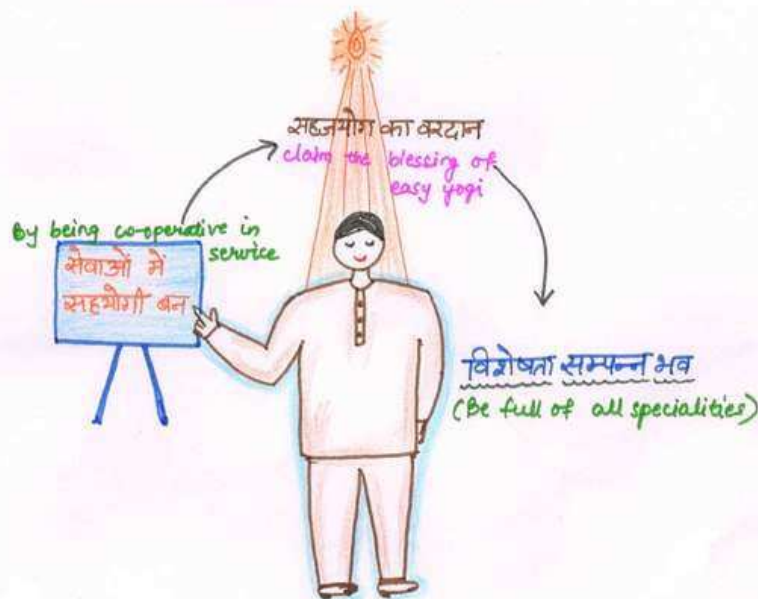 सहजयोग का वरदान
claim the blessing of
easy yogi
By being co-operative in
service
सेवाओं में
सहयोगी बन
विशेषता सम्पन्न भव
(Be full of all specialities)